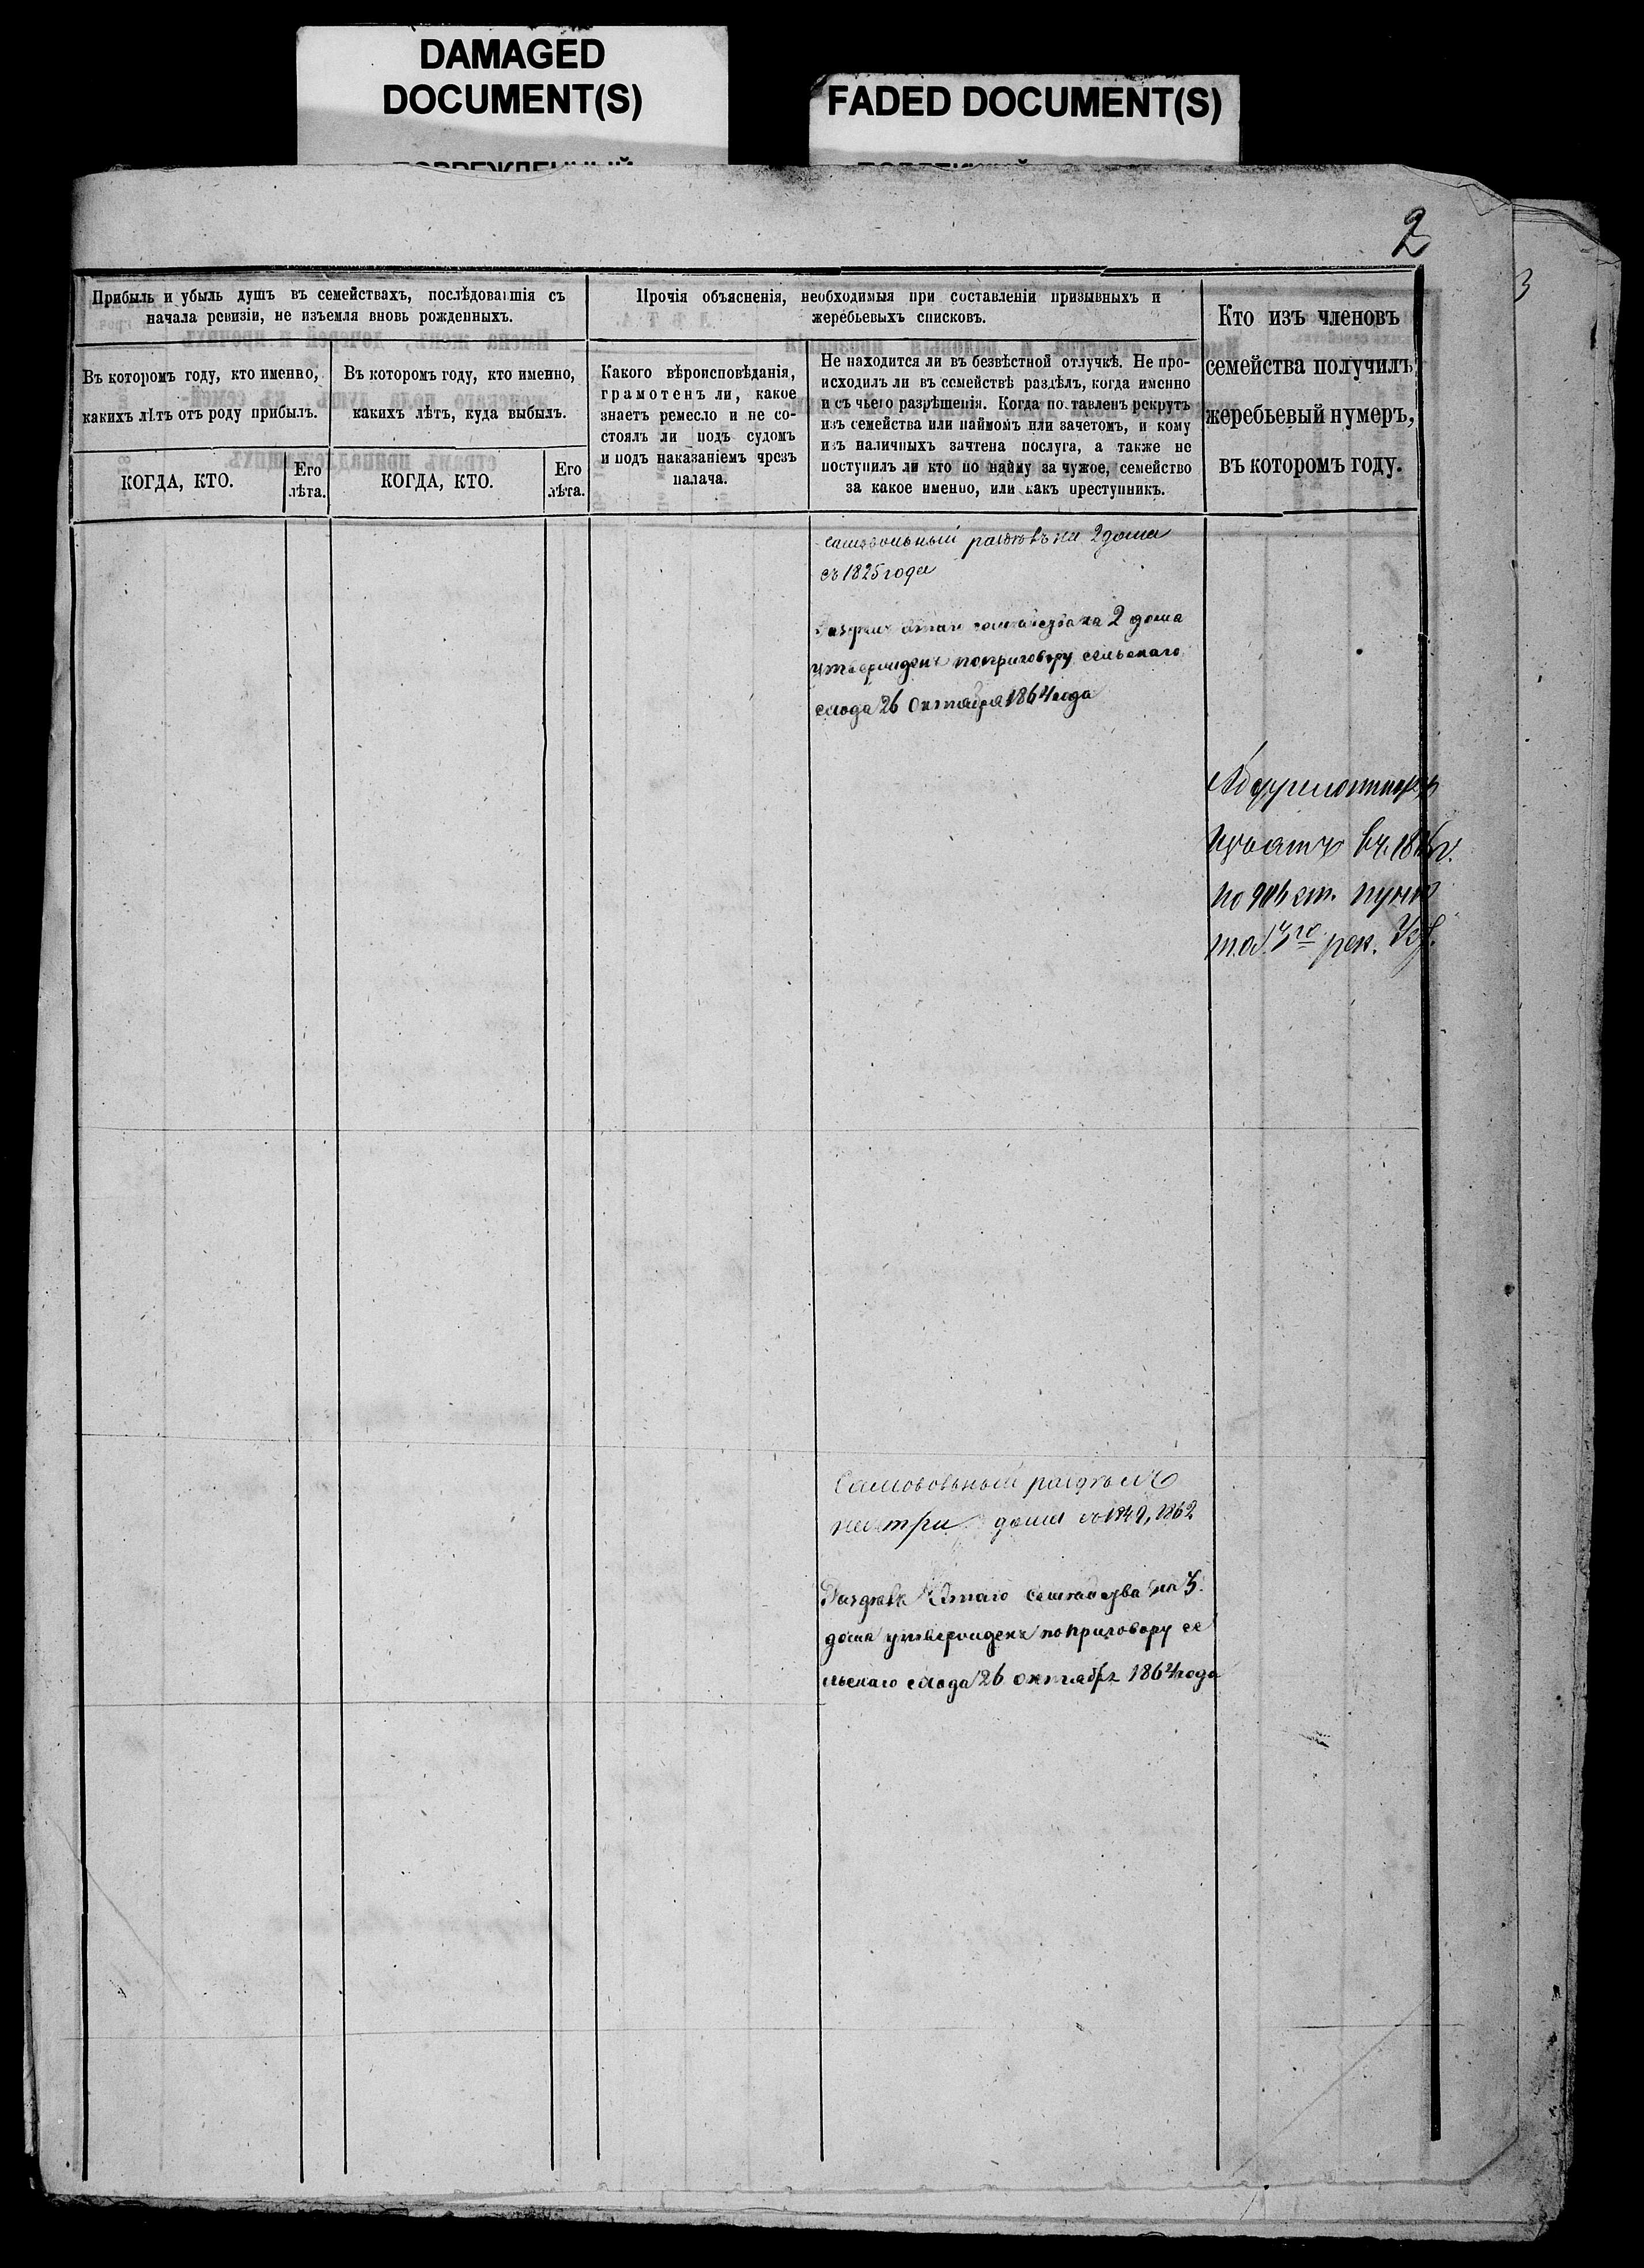 DAMAGED
DOCUMENT(S)
FADED DOCUMENT(S)
2
3
Прибыль и убыль душъ въ семействахъ, послѣдовавшія съ
начала ревизіи, не изъемля вновь рожденныхъ.
Въ которомъ году, кто именно,
какихъ лѣтъ отъ роду прибылъ.
КОГДА, КТО.
Его
лѣта.
Въ которомъ году, кто именно,
какихъ лѣтъ, куда выбылъ.
КОГДА, КТО.
Его
лѣта.
Прочія объясненія, необходимыя при составленіи призывныхъ и
жеребьевыхъ списковъ.
Какого вѣроисповѣданія,
грамотенъ ли, какое
знаетъ ремесло и не со-
стоялъ ли подъ судомъ
и подъ наказаніемъ чрезъ
палача.
Не находится ли въ безвѣстной отлучкѣ. Не про-
исходилъ ли въ семействѣ раздѣлъ, когда именно
и съ чьего разрѣшенія. Когда поставленъ рекрутъ
изъ семейства или наймомъ или зачетомъ, и кому
изъ наличныхъ зачтена послуга, а также не
поступилъ ли кто по найму за чужое, семейство
за какое именно, или какъ преступникъ.
Кто изъ членовъ
семейства получилъ
жеребьевый нумеръ,
въ которомъ году.
самовольный раздѣлъ на 2 дома
съ 1825 года
Раздѣлъ этаго семейства на 2 дома
утвержденъ по приговору сельскаго
схода 26 Октября 1864 года
въ
ст. пунк
та 3го рек. Уст.
Самовольный раздѣлъ
на три дома съ 1849, 1862
Раздѣлъ этаго семейства на 3
дома утвержденъ по приговору се
льскаго схода 26 октября 1864 года